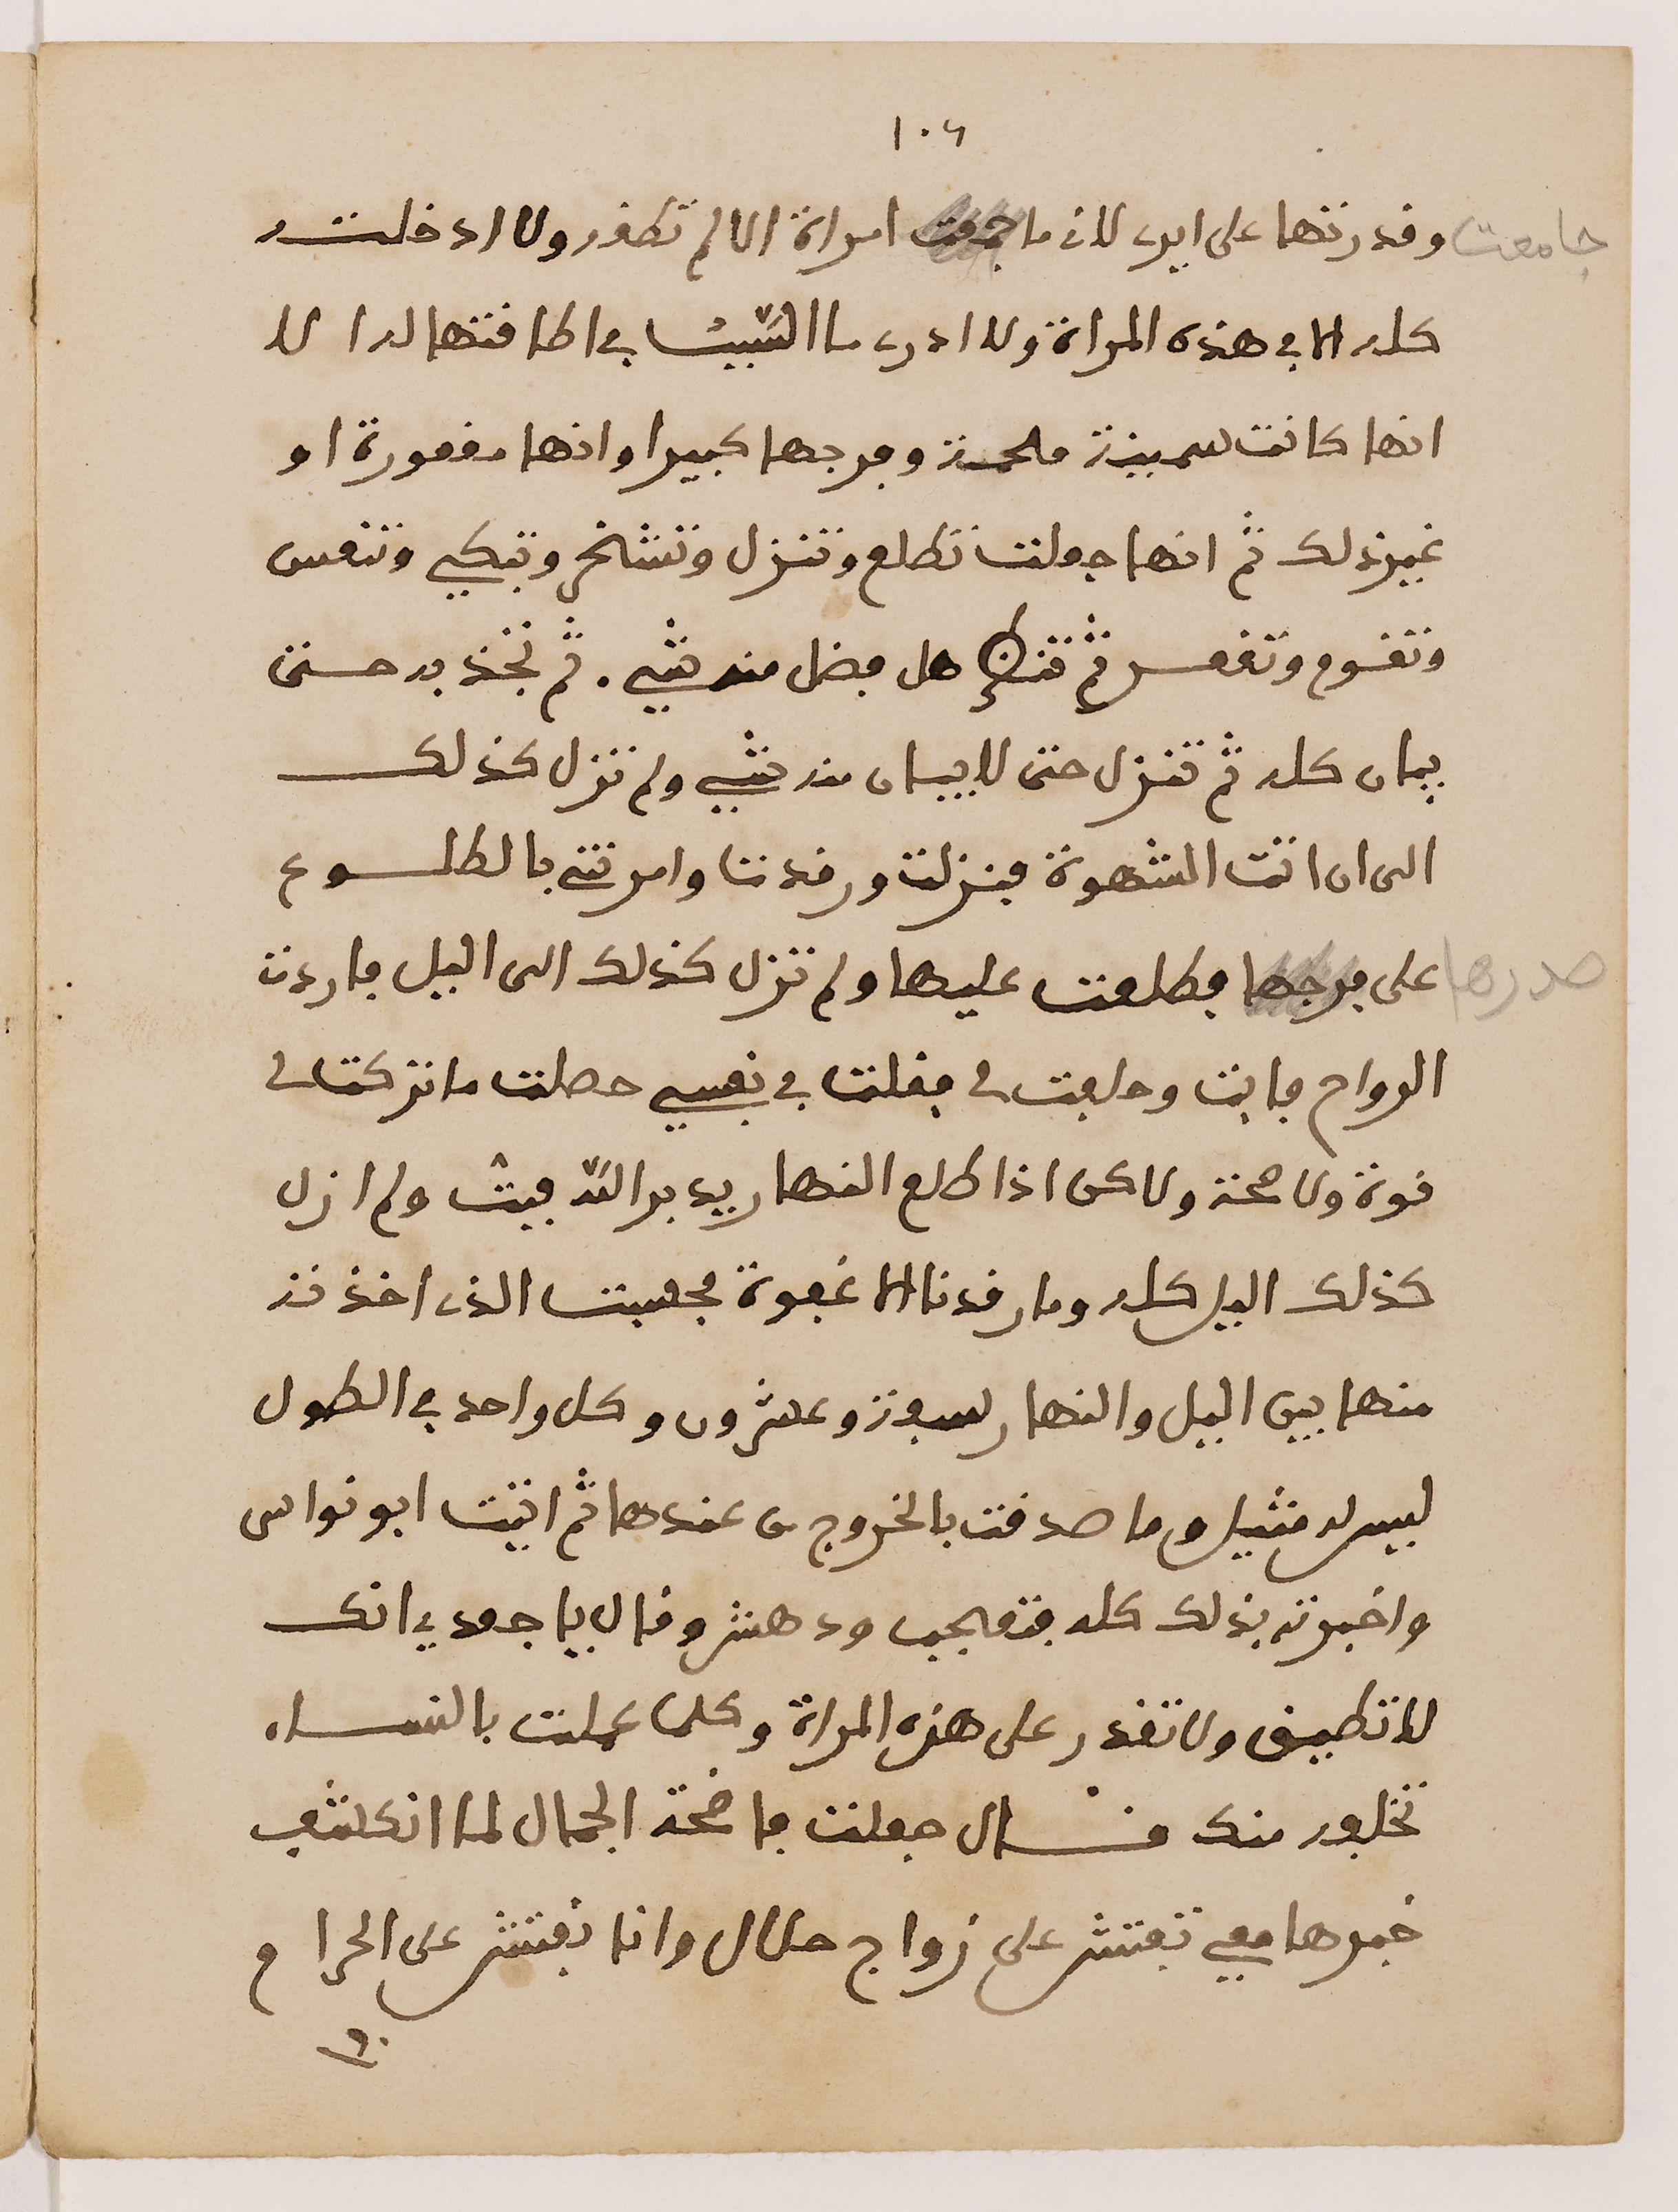 ١٠٦
جامعت
وقدرتها على ايري لاني ما جمعت امراة الا لم تطقه ولا ادخلته
كله الا في هذه المراة ولا ادري ما السّبب في اطاقتها له الا
انها كانت سمينة ملحمة وفرجها كبيرا وانها مقعورة او
غير ذلك ثم انها جعلت تطلع وتنزل وتشخر وتبكي وتنفس
وتقوم وتقعس ثم تنظر هل فضل منه شي. ثم تجذبه حتى
يبان كله ثم تنزل حتى لا يبان منه شي ولم تزل كذلك
الى ان اتت الشهوة فنزلت ورقدت وامرتني بالطلوع
صدرها
على فرجها فطلعت عليها ولم تزل كذلك الى اليل فاردت
الرواح فابت وحلفت لي فقلت في نفسي حصلت ما تركت لي
قوة ولا صحة ولاكن اذا طلع النهار يدبر اللّه فبت ولم ازل
كذلك اليل كله وما رقدنا الا غفوة فحسبت الذي اخذته
منها بين اليل والنهار سبعة وعشرون وكل واحد في الطول
ليس له مثيل وما صدقت بالخروج من عندها ثم اتيت ابو نواس
واخبرته بذلك كله فتعجب ودهش وقال يا جعيدي انك
لا تطيق ولا تقدر على هذه المراة وكلما عملت بالنساء
تخلفه منك قال جعلت فاضحة الجمال لما انكشف
خبرها معي تفتش على زواج حلال وانا نفتش على الحرام